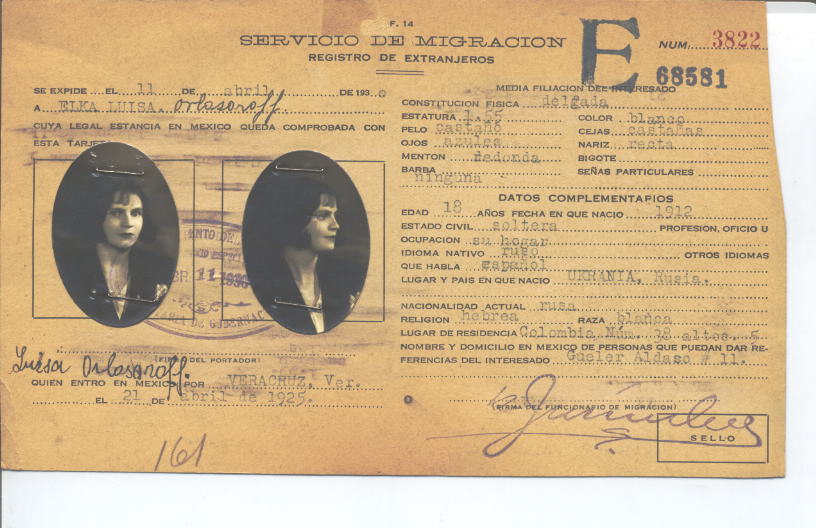 F. 14
SERVICIO DE MIGRACION
REGISTRO DE EXTRANJEROS
E
NUM. 3822
68581
SE EXPIDE EL 11 DE abril DE 1930
A ELKA LUISA. Orlasoroff.
CUYA LEGAL ESTANCIA EN MEXICO QUEDA COMPROBADA CON
ESTA TARJETA
11 1930
DE GOBERNAC
(FIRMA DEL PORTADOR)
Luisa Orlasoroff.
QUIEN ENTRO EN MEXICO POR VERACRUZ, Ver.
EL 21 DE abril de 1925.
161
MEDIA FILIACION DEL INTERESADO
CONSTITUCION FISICA delgada
ESTATURA 1.55 COLOR blanco
PELO castaño CEJAS castañas
OJOS NARIZ recta
MENTON redonda BIGOTE
BARBA SEÑAS PARTICULARES
ninguna
DATOS COMPLEMENTARIOS
EDAD 18 AÑOS FECHA EN QUE NACIO 1912
ESTADO CIVIL soltera PROFESION, OFICIO U
OCUPACION su hogar
IDIOMA NATIVO ruso OTROS IDIOMAS
QUE HABLA español
LUGAR Y PAIS EN QUE NACIO UKRANIA, Rusia.
NACIONALIDAD ACTUAL rusa
RELIGION hebrea RAZA blanca
LUGAR DE RESIDENCIA Colombia Núm. 38 altos. 5
NOMBRE Y DOMICILIO EN MEXICO DE PERSONAS QUE PUEDAN DAR RE-
FERENCIAS DEL INTERESADO Gueler Aldaso # 11.
(FIRMA DEL FUNCIONARIO DE MIGRACION)
SELLO